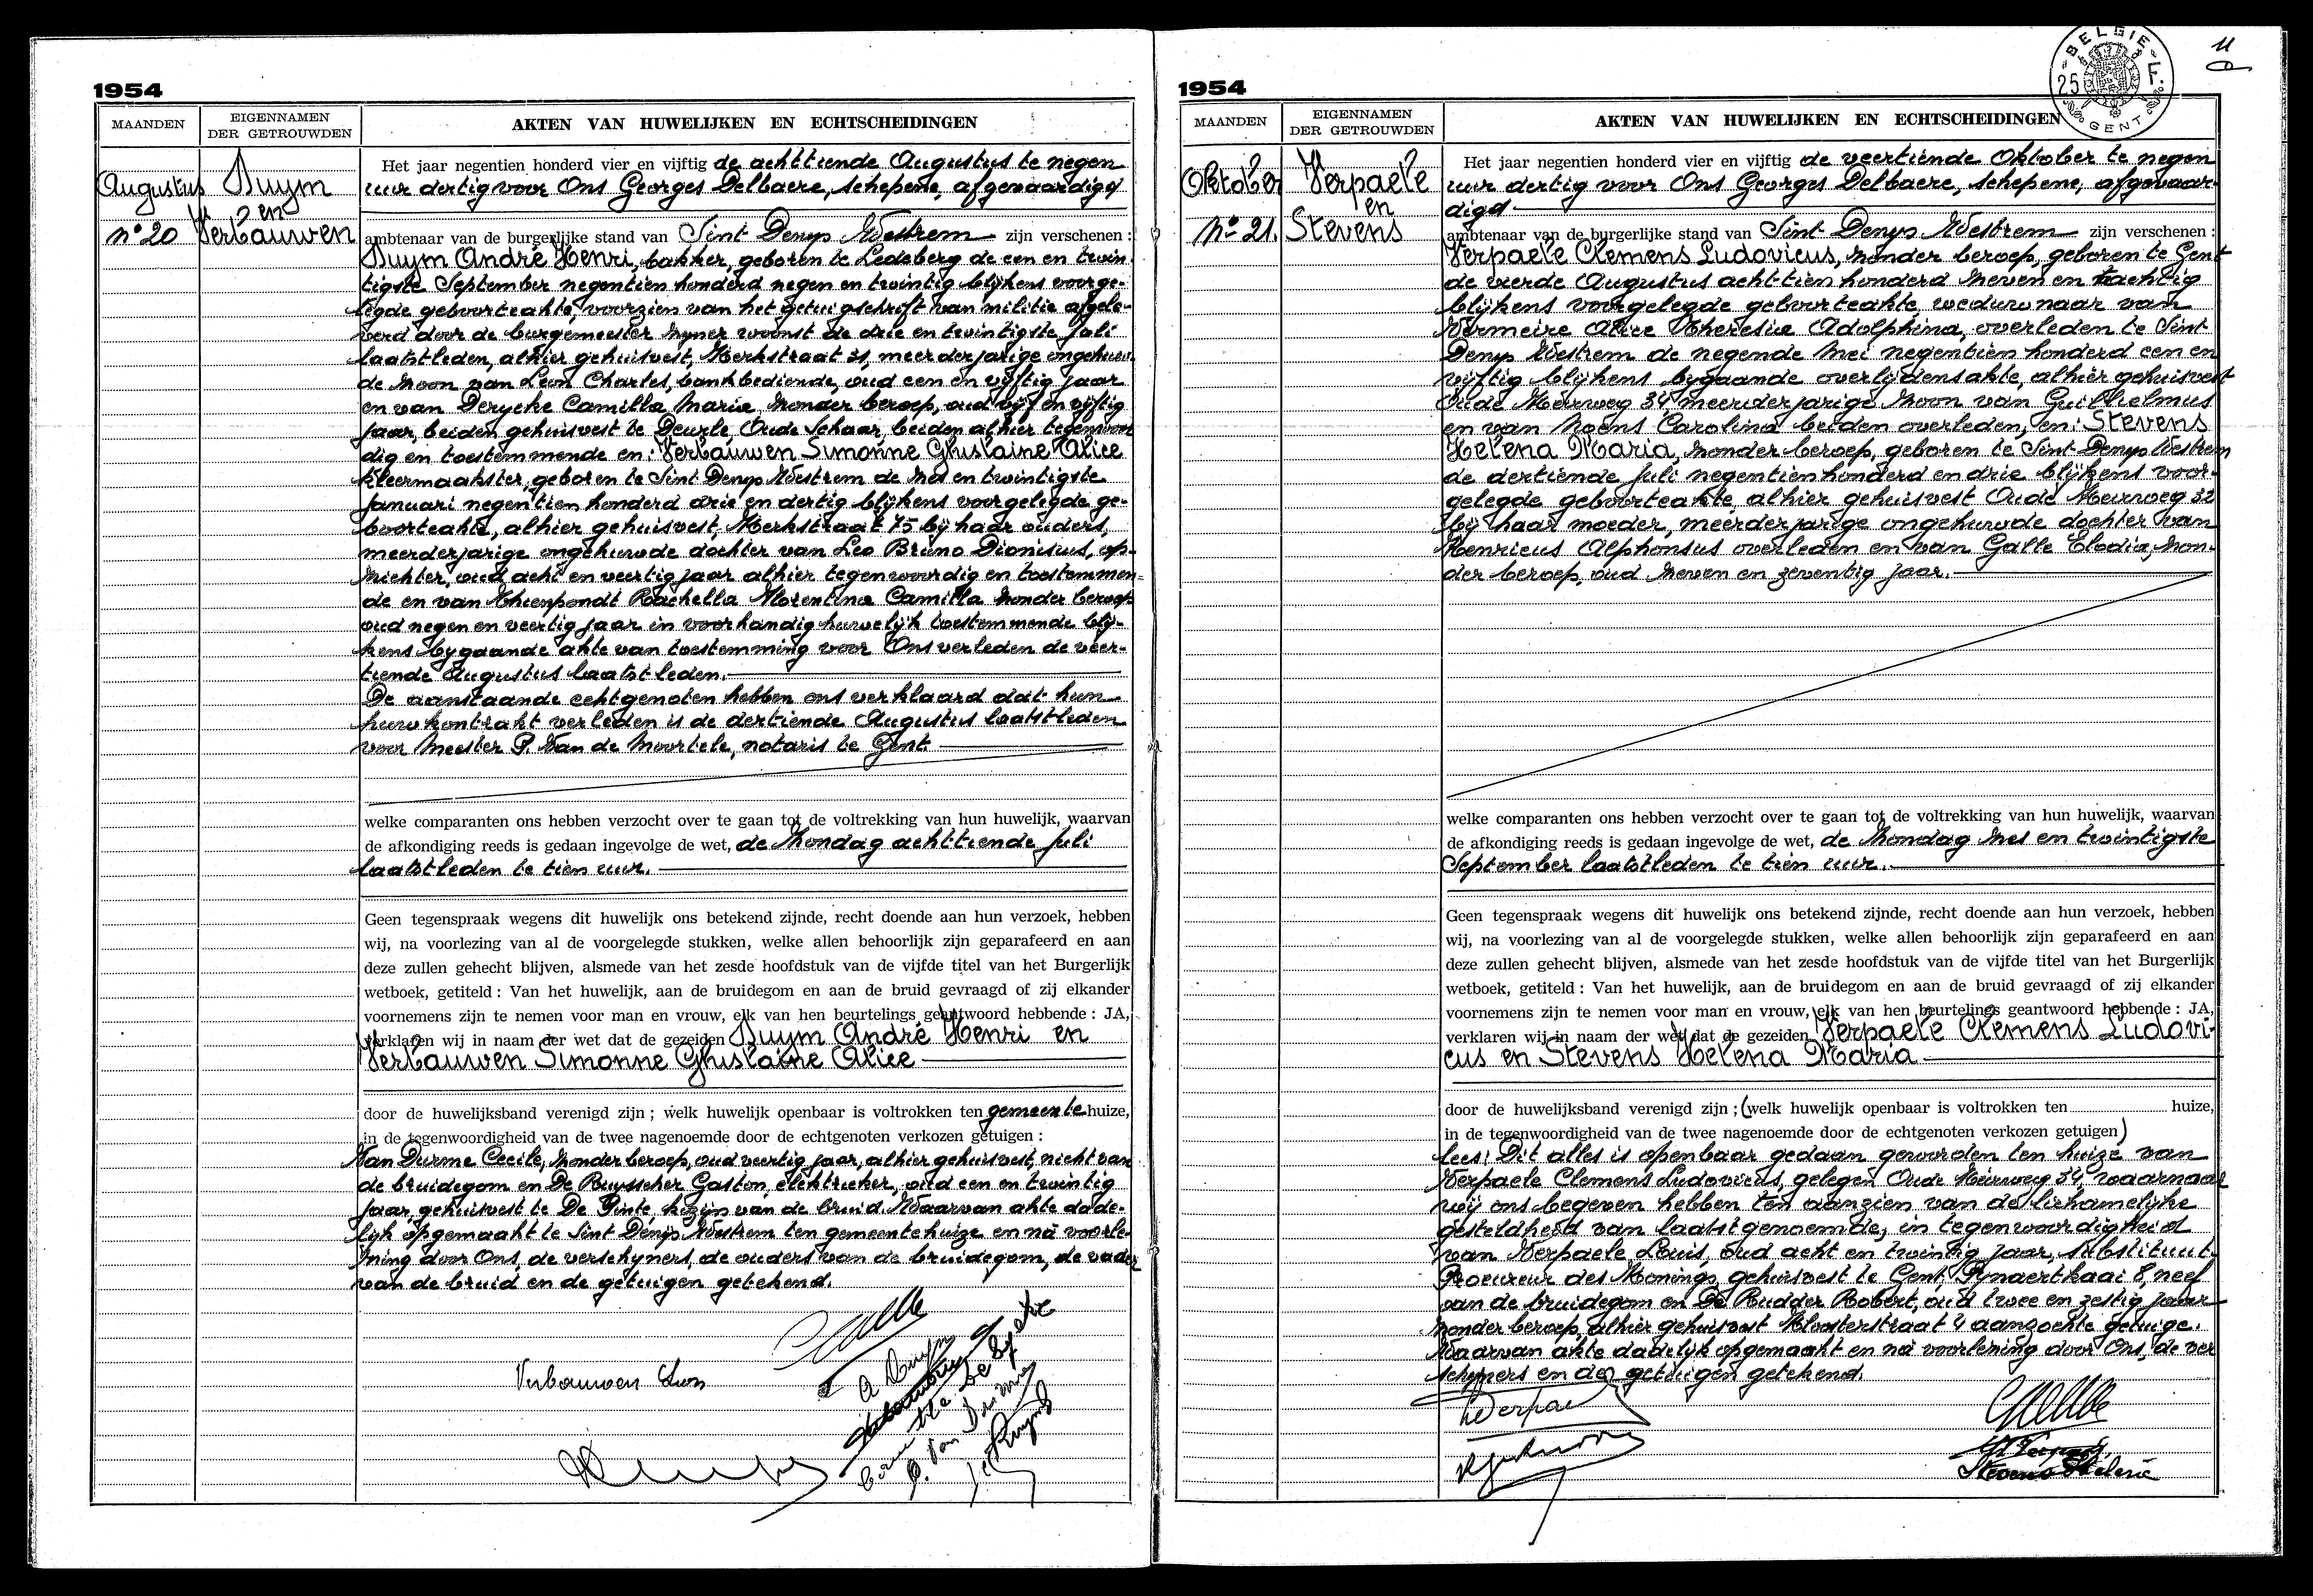 1954
MAANDEN
EIGENNAMEN
DER GETROUWDEN
AKTEN VAN HUWELIJKEN EN ECHTSCHEIDINGEN
Augustus
nº 20
Duym
en
Verbauwen
Het jaar negentien honderd vier en vijftig de achttiende Augustus te negen
uur dertig voor Ons Georges Delbaere, schepene, afgevaardigd
ambtenaar van de burgerlijke stand van Sint Denys Westrem zijn verschenen :
Duym André Henri, bakker, geboren te Ledeberg de een en twin
tigste September negentien honderd negen en twintig blijkens voorge-
legde geboorteakte, voorzien van het getuigschrift van militie afgele-
verd door de burgemeester zijner woonst de drie en twintigste Juli
laatstleden, alhier gehuisvest, Kerkstraat 31, meerderjarige ongehuw-
de zoon van Leon Charles, bankbediende, oud een en vijftig jaar
en van Derycke Camilla Maria, zonder beroep, oud vijf en vijftig
jaar, beiden gehuisvest te Deurle, Oude Schaar, beiden alhier tegenwoor
dig en toestemmende en: Verbauwen Simonne Ghislaine Alice
kleermaakster, geboren te Sint Denys Westrem de zes en twintigste
Januari negentien honderd drie en dertig blijkens voorgelegde ge-
boorteakte, alhier gehuisvest, Kerkstraat 75 bij haar ouders,
meerderjarige ongehuwde dochter van Leo Bruno Dionisius, op-
zichter, oud acht en veertig jaar alhier tegenwoordig en toestemmen-
de en van Thienpondt Rachella Florentina Camilla zonder beroep
oud negen en veertig jaar in voorhandig huwelijk toestemmende blij-
kens bygaande akte van toestemming voor Ons verleden de veer-
tiende Augustus laatstleden.
De aanstaande echtgenoten hebben ons verklaard dat hun
huwkontrakt verleden is de dertiende Augustus laatstleden
voor Meester P. Van de Moortele, notaris te Gent.
welke comparanten ons hebben verzocht over te gaan tot de voltrekking van hun huwelijk, waarvan
de afkondiging reeds is gedaan ingevolge de wet, de Zondag achttiende Juli
laatstleden te tien uur.
Geen tegenspraak wegens dit huwelijk ons betekend zijnde, recht doende aan hun verzoek, hebben
wij, na voorlezing van al de voorgelegde stukken, welke allen behoorlijk zijn geparafeerd en aan
deze zullen gehecht blijven, alsmede van het zesde hoofdstuk van de vijfde titel van het Burgerlijk
wetboek, getiteld : Van het huwelijk, aan de bruidegom en aan de bruid gevraagd of zij elkander
voornemens zijn te nemen voor man en vrouw, elk van hen beurtelings geantwoord hebbende : JA,
verklaren wij in naam der wet dat de gezeiden Duym André Henri en
Verbauwen Simonne Ghislaine Alice
door de huwelijksband verenigd zijn ; welk huwelijk openbaar is voltrokken ten gemeentehuize,
in de tegenwoordigheid van de twee nagenoemde door de echtgenoten verkozen getuigen :
Van Durme Cecile, zonder beroep, oud veertig jaar, alhier gehuisvest, nicht van
de bruidegom en De Ruysscher Gaston, elektrieker, oud een en twintig
jaar, gehuisvest te De Pinte, kozijn van de bruid. Waarvan akte dade-
lijk opgemaakt te Sint Denys Westrem ten gemeentehuize en na voorle-
zing door Ons, de verschyners, de ouders van de bruidegom, de vader
van de bruid en de getuigen getekend.
Verbauwen Leon
A Duym
1954
BELGIE
25
GENT
11
MAANDEN
EIGENNAMEN
DER GETROUWDEN
AKTEN VAN HUWELIJKEN EN ECHTSCHEIDINGEN
Oktober
Nº 21.
Verpaele
en
Stevens
Het jaar negentien honderd vier en vijftig de veertiende Oktober te negen
uur dertig voor Ons Georges Delbaere, schepene, afgevaar-
digd
ambtenaar van de burgerlijke stand van Sint Denys Westrem zijn verschenen :
Verpaele Clemens Ludovicus, zonder beroep, geboren te Gent
de vierde Augustus achttien honderd zeven en tachtig
blijkens voorgelegde geboorteakte, weduwnaar van
Vermeire Alice Theresia Adolphina, overleden te Sint
Denys Westrem de negende Mei negentien honderd een en
vijftig blijkens bygaande overlijdensakte, alhier gehuisvest
Oude Meirweg 34 meerderjarige zoon van Guillielmus
en van Noens Carolina beiden overleden, en: Stevens
Helena Maria, zonder beroep, geboren te Sint-Denys Westrem
de dertiende Juli negentienhonderd en drie blijkens voor-
gelegde geboorteakte, alhier gehuisvest Oude Meirweg 32
bij haar moeder, meerderjarige ongehuwde dochter van
Henricus Alphonsus overleden en van Galle Elodia, zon-
der beroep, oud zeven en zeventig jaar.
welke comparanten ons hebben verzocht over te gaan tot de voltrekking van hun huwelijk, waarvan
de afkondiging reeds is gedaan ingevolge de wet, de Zondag zes en twintigste
September laatstleden te tien uur.
Geen tegenspraak wegens dit huwelijk ons betekend zijnde, recht doende aan hun verzoek, hebben
wij, na voorlezing van al de voorgelegde stukken, welke allen behoorlijk zijn geparafeerd en aan
deze zullen gehecht blijven, alsmede van het zesde hoofdstuk van de vijfde titel van het Burgerlijk
wetboek, getiteld : Van het huwelijk, aan de bruidegom en aan de bruid gevraagd of zij elkander
voornemens zijn te nemen voor man en vrouw, elk van hen beurtelings geantwoord hebbende : JA,
verklaren wij in naam der wet dat de gezeiden Verpaele Clemens Ludovi-
cus en Stevens Helena Maria
door de huwelijksband verenigd zijn ; (welk huwelijk openbaar is voltrokken ten huize,
in de tegenwoordigheid van de twee nagenoemde door de echtgenoten verkozen getuigen)
lees: Dit alles is openbaar gedaan geworden ten huize van
Verpaele Clemens Ludovicus, gelegen Oude Meirweg 34, waarnaar
wij ons begeven hebben ten aanzien van de lichamelijke
gesteldheid van laatstgenoemde, in tegenwoordigheid
van Verpaele Louis, oud acht en twintig jaar, substituut
Procureur des Konings, gehuisvest te Gent, Pynaertkaai 8, neef
van de bruidegom en De Rudder Robert, oud twee en zestig jaar
zonder beroep, alhier gehuisvest Kloosterstraat 4 aanzochte getuige.
Waarvan akte dadelijk opgemaakt en na voorlezing door Ons, de ver
schyners en de getuigen getekend.
Stevens Helena